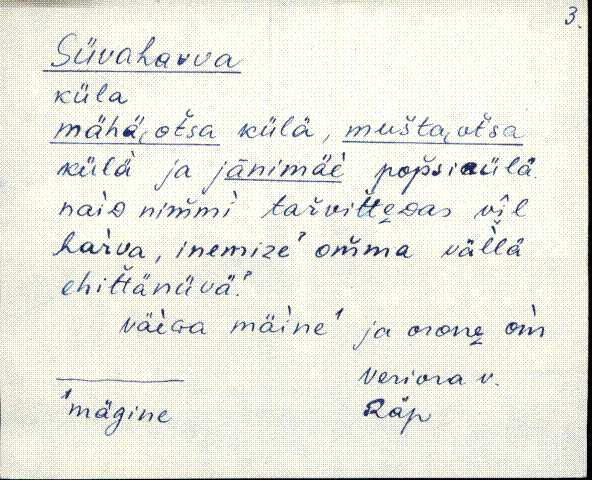 3.
Süvaharva
küla
mähä, otsa külä, mušta, otsa
külä ja jānimäe popsikülä.
naiᴅ nimmi tarvitteᴅas vīl
harva, inemizeʔ omma vällä
ehittänüväʔ.
väèga mäine¹ ja orone oìn
Veriora v.
¹mägine Räp